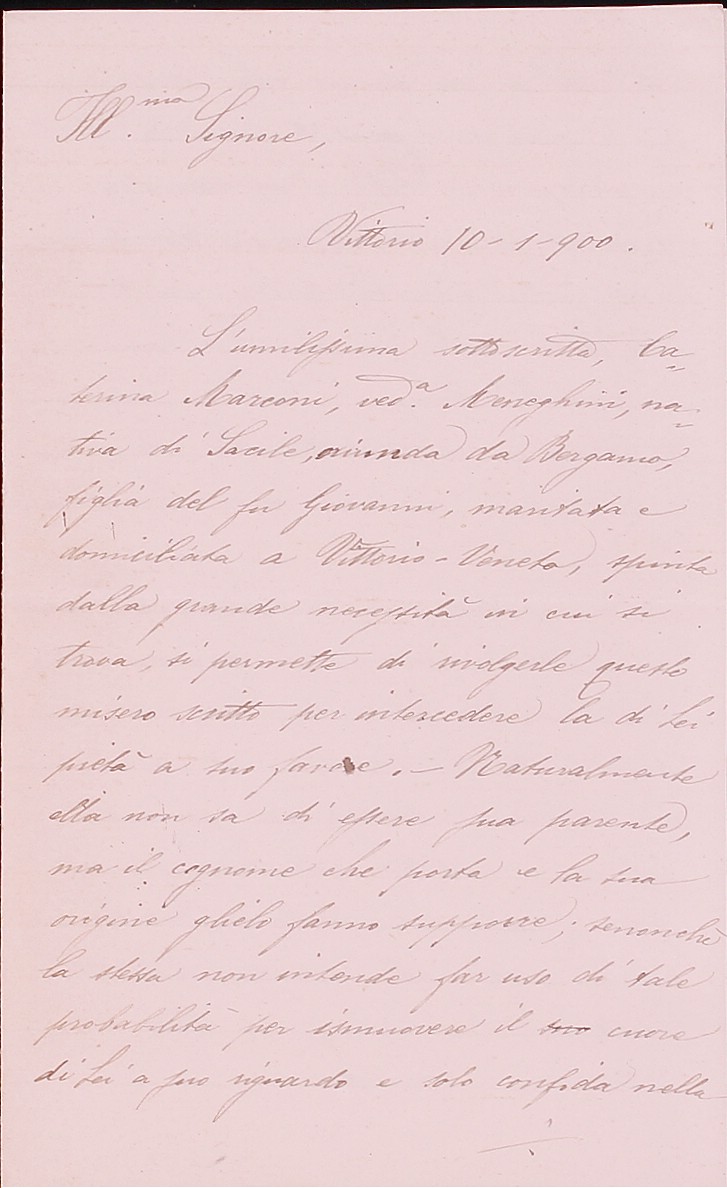 Ill.mo Signore,
Vittorio 10-1-900.
L'umilissima sottoscritta, Ca=
terina Marconi, ved.a Meneghini, na=
tiva di Sacile, oriunda da Bergamo,
figlia del fu Giovanni, maritata e
domiciliata a Vittorio-Veneto, spinta
dalla grande necessità in cui si
trova, si permette di rivolgerle questo
misero scritto per intercedere la di Lei
pietà a suo favore. - Naturalmente
ella non sa di essere sua parente,
ma il cognome che porta e la sua
origine glielo fanno supporre; senonchè
la stessa non intende far uso di tale
probabilità per ismuovere il suo cuore
di Lei a suo riguardo e solo confida nella